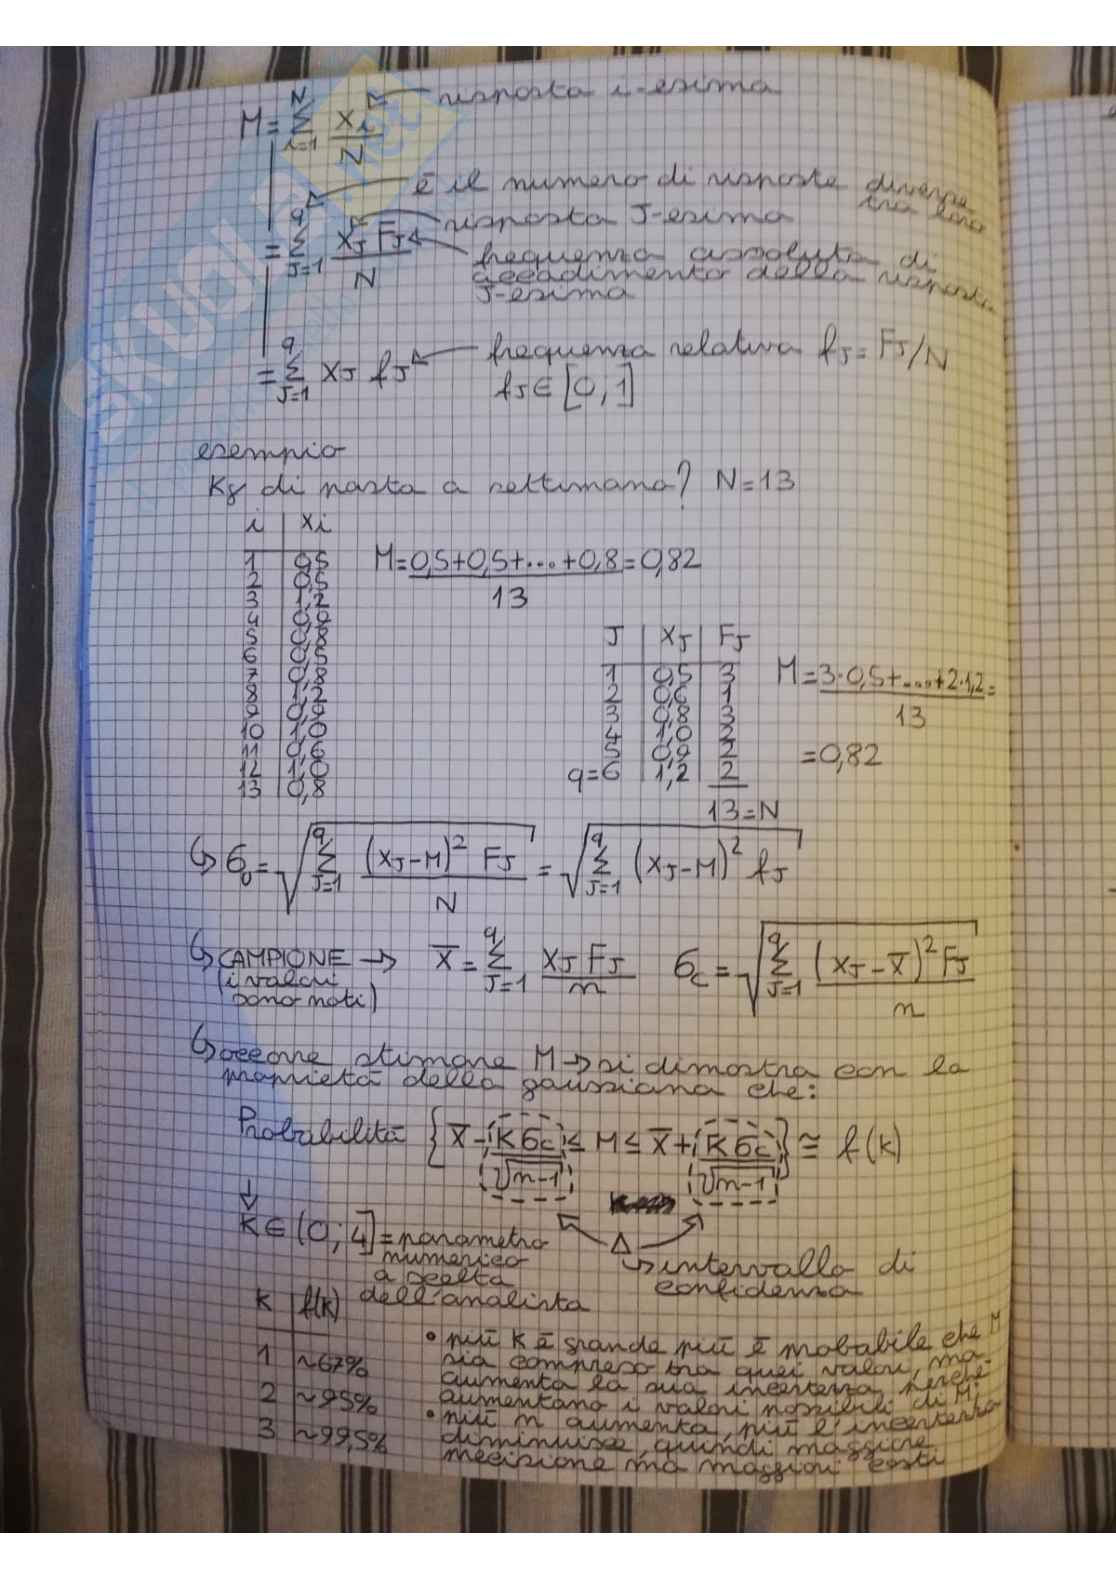 M = Σ_{i=1}^{N} x_i / N ← risposta i-esima
è il numero di risposte diverse tra loro
risposta J-esima
= Σ_{J=1}^{q} x_J F_J / N
frequenza assoluta di
accadimento della risposta
J-esima
= Σ_{J=1}^{q} x_J f_J ← frequenza relativa f_J = F_J/N
f_J ∈ [0,1]
esempio
Kg di pasta a settimana? N=13
i | xi
1 | 0,5 M = 0,5+0,5+....+0,8 / 13 = 0,82
2 | 0,5
3 | 1,2
4 | 0,9
5 | 0,8
6 | 0,5
7 | 0,8
8 | 1,2
9 | 0,9
10 | 1,0
11 | 0,6
12 | 1,0
13 | 0,8
J | x_J | F_J
1 | 0,5 | 3 M = 3·0,5+....+2·1,2 / 13 =
2 | 0,6 | 1
3 | 0,8 | 3
4 | 1,0 | 2
5 | 0,9 | 2 = 0,82
q=6 | 1,2 | 2
13=N
↳ σ_U = √(Σ_{J=1}^{q} (x_J-M)² F_J / N) = √(Σ_{J=1}^{q} (x_J-M)² f_J)
↳ CAMPIONE → x̄ = Σ_{J=1}^{q} x_J F_J / n σ_c = √(Σ_{J=1}^{q} (x_J-x̄)² F_J / n)
(i valori
sono noti)
↳ occorre stimare M → si dimostra con la
proprietà della gaussiana che:
Probabilità {x̄ - Kσc/√n-1 ≤ M ≤ x̄ + Kσc/√n-1} ≅ f(k)
↓
K ∈ (0; 4] = parametro
numerico
a scelta
dell'analista
Δ
↳ intervallo di
confidenza
K | f(k)
1 | ~67%
2 | ~95%
3 | ~99,5%
• più K è grande più è probabile che M
sia compreso tra quei valori, ma
aumenta la sua incertezza perché
aumentano i valori possibili di M;
• più n aumenta, più l'incertezza
diminuisce, quindi maggiore
precisione ma maggiori costi